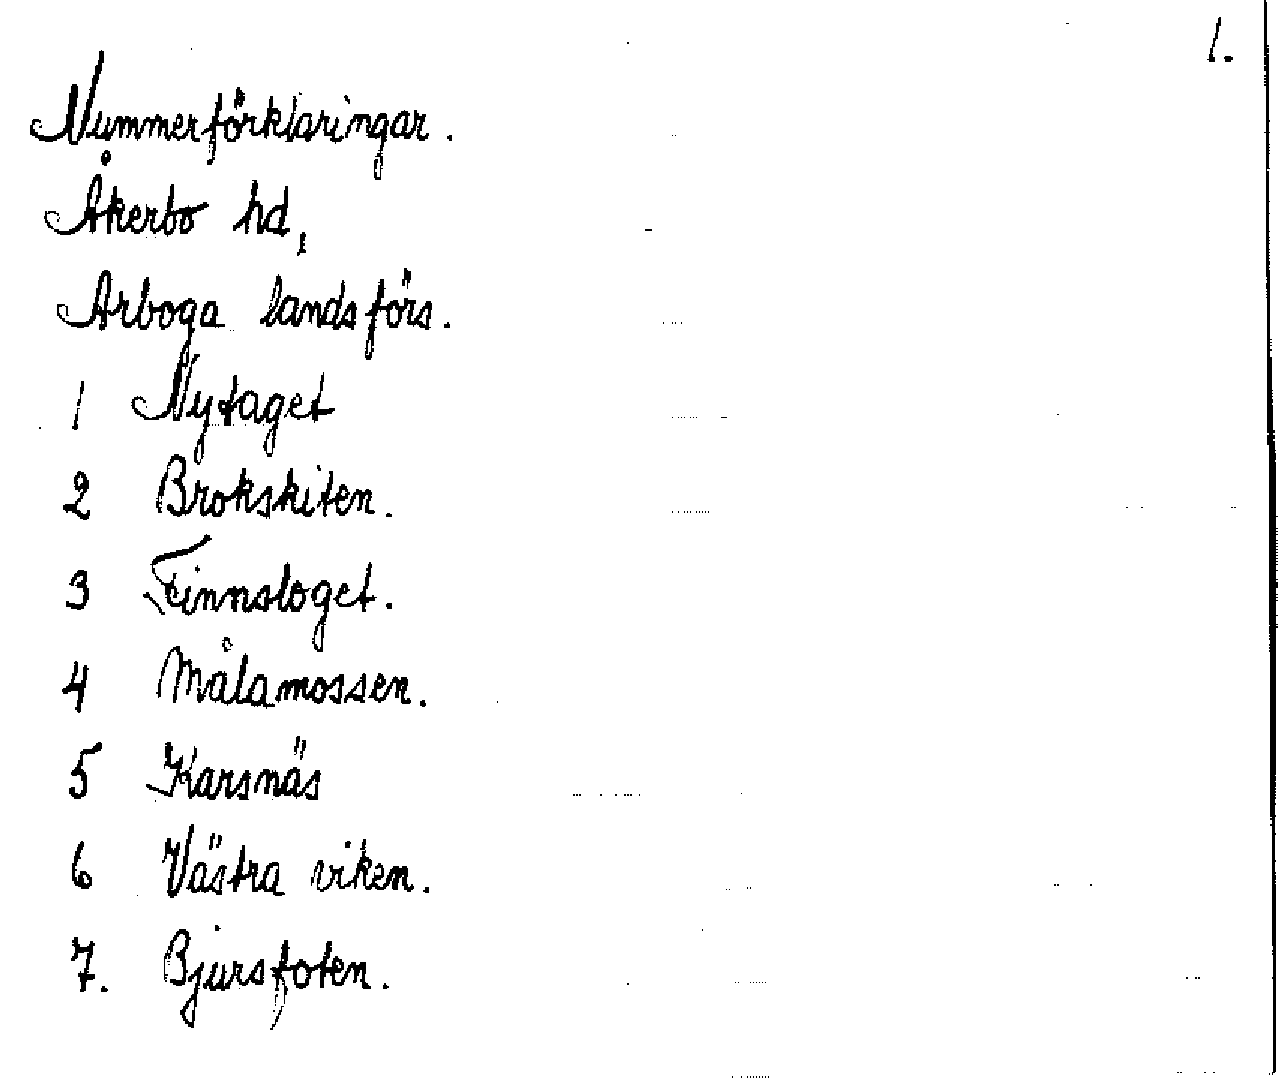 1.
Nummerförklaringar.
Åkerbo hd,
Arboga landsförs.
1 Nytaget
2 Brokskiten.
3 Finnsloget.
4 Målamossen.
5 Karsnäs
6 Västra viken.
7. Bjursfoten.